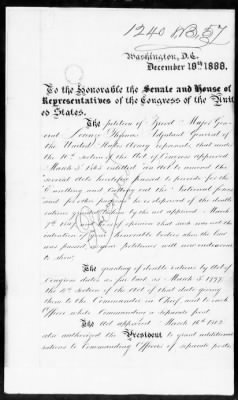 1240 ~~183~~ 57
Washington, D.C.
December 18th 1888.
To the Honorable the Senate and House of
Representatives of the Congress of the Unit
ed States.
The petition of Major Gen
eral Adjutant General of
the United States Army represents, that under
the 10th section of the Act of Congress approved
March 3d 1863 entitled an Act to amend the
several Acts heretofore passed to provide for the
Enrolling and Calling out the National forces
and for other purposes he is deprived of the double
rations by the act approved March
and is of opinion that such was not the
intention of your honorable bodies when the law
was passed as your petitioner will now endeavor
to show.
The granting of double rations by Act of
Congress dates as far back as March 3, 1797,
the 4th section of the Act of that date giving
them to the Commander in Chief, and to each
Officer while Commanding a separate post.
The Act approved March 16th 1802
also authorized the President to grant additional
rations to Commanding Officers of separate posts,